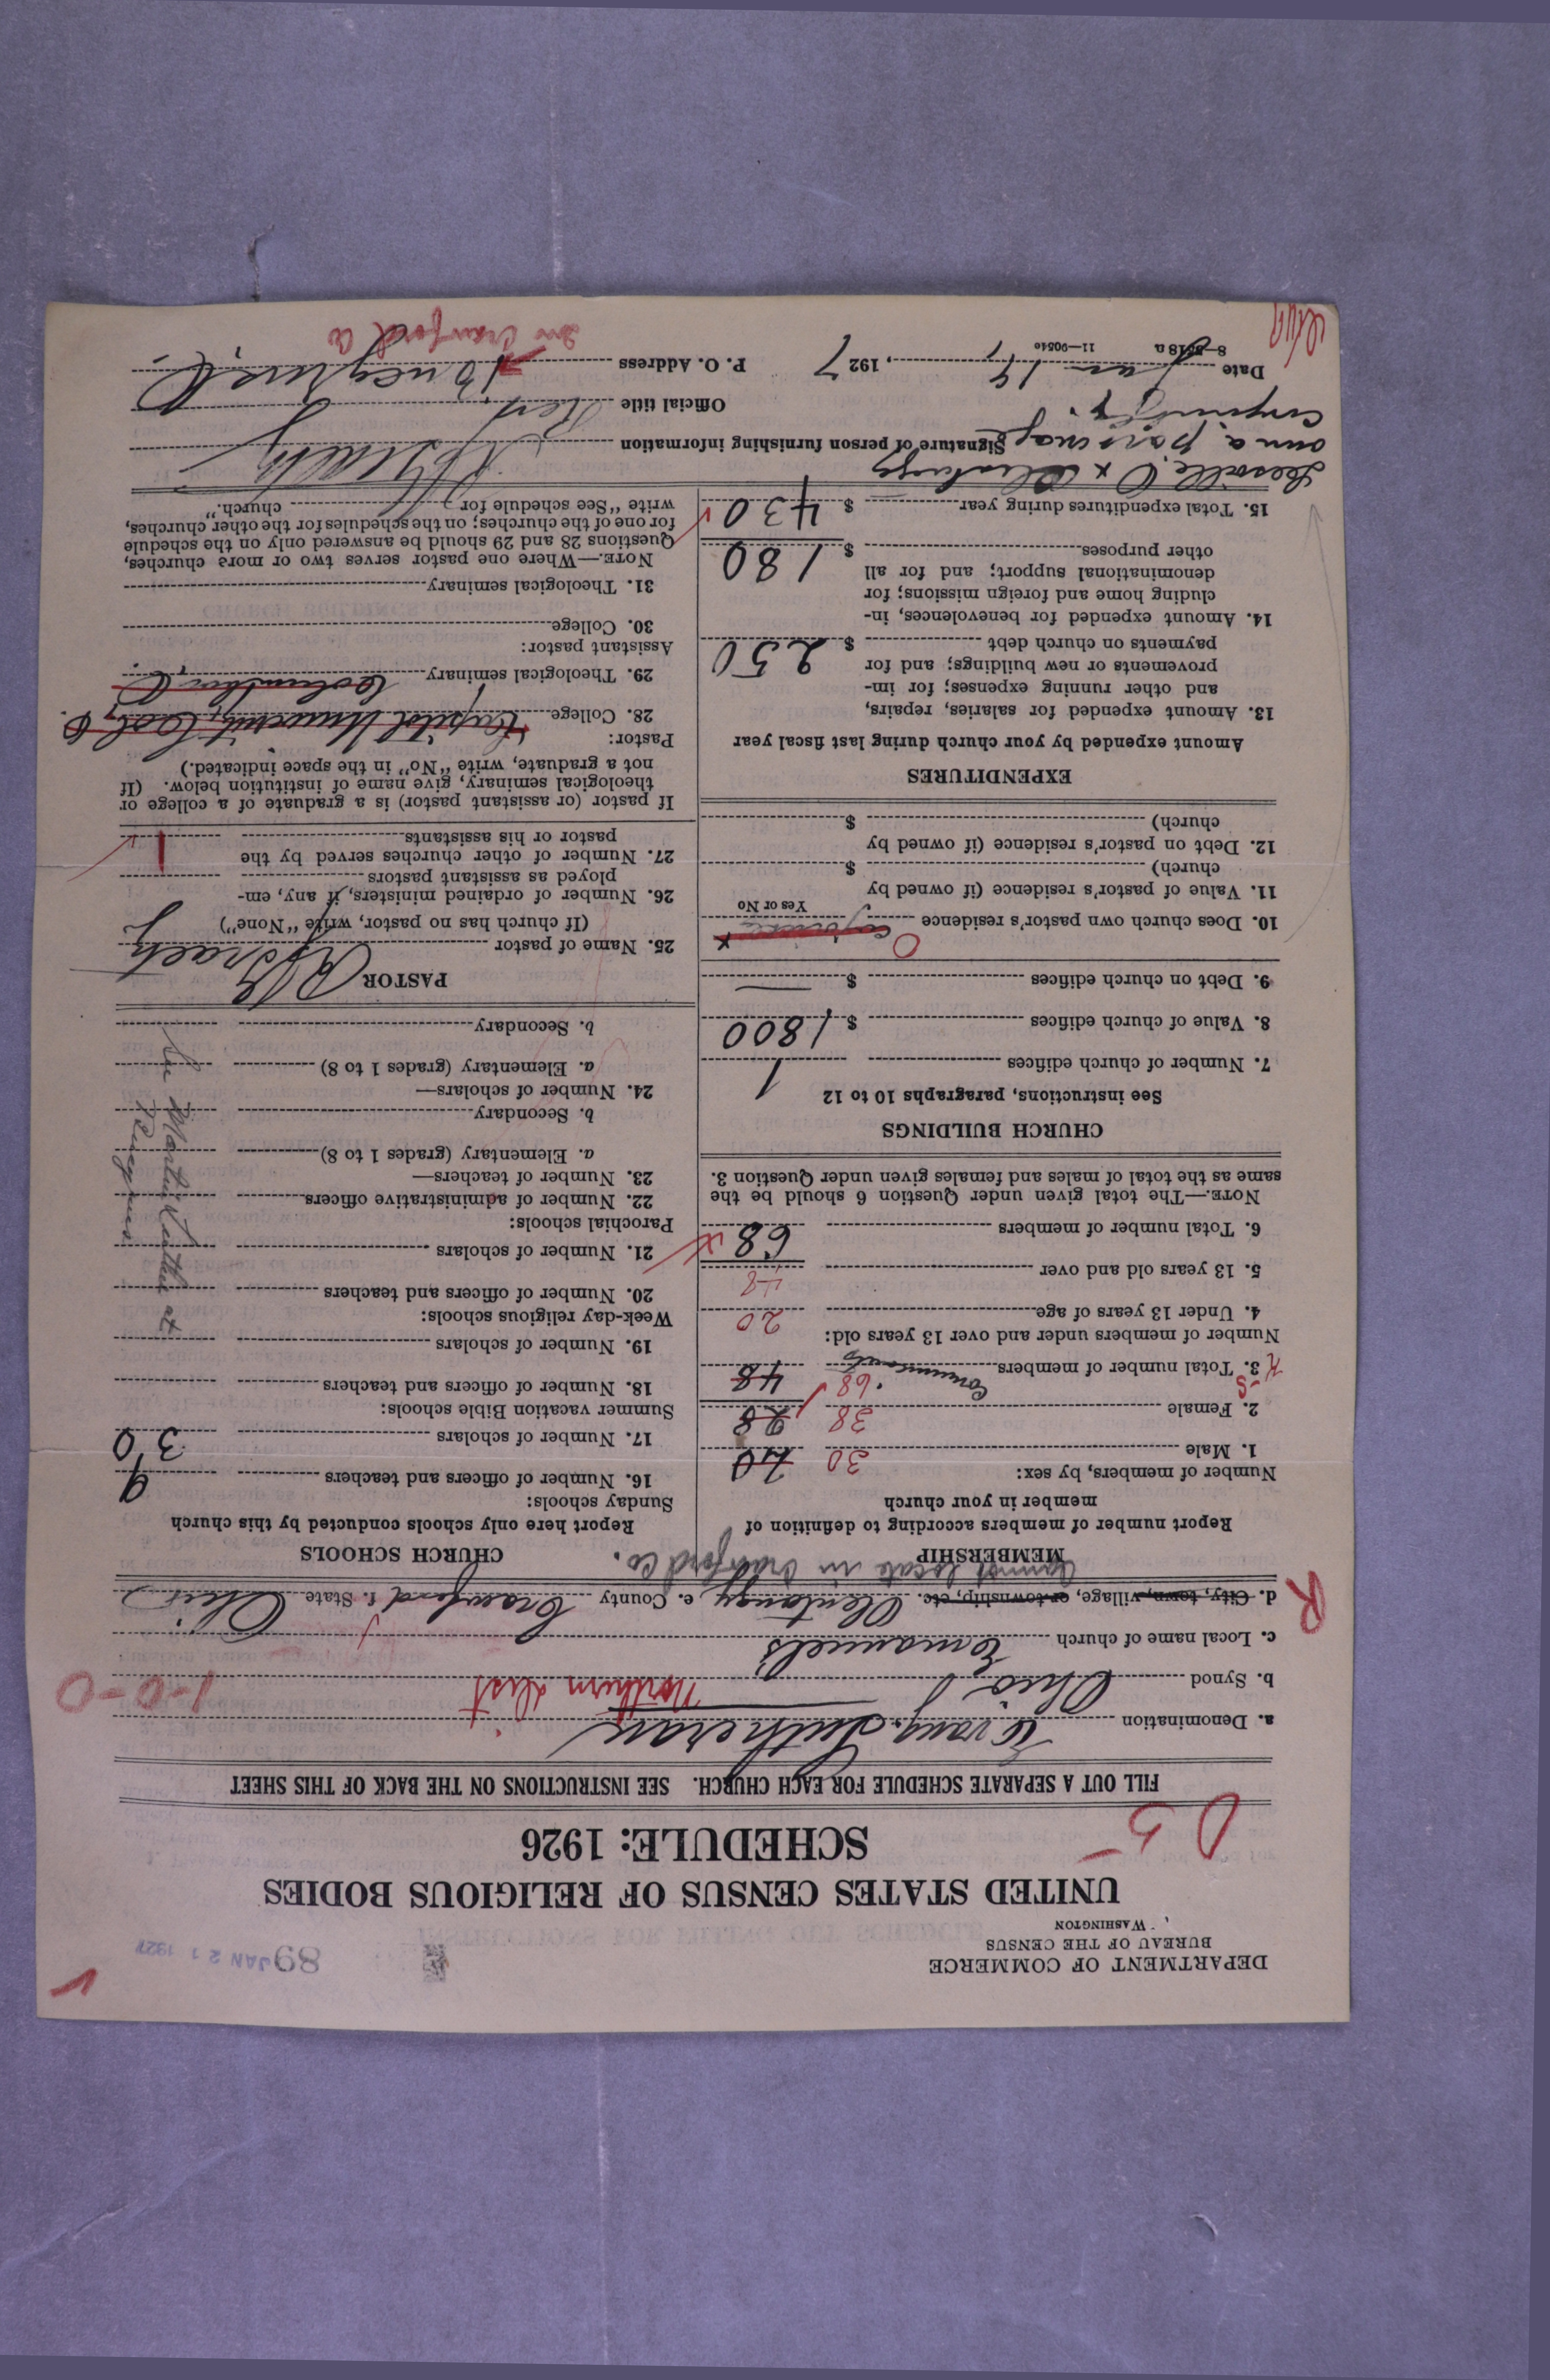 DEPARTMENT OF COMMERCE
BUREAU OF THE CENSUS
WASHINGTON
89 JAN 21 1927
UNITED STATES CENSUS OF RELIGIOUS BODIES
SCHEDULE: 1926
D 5
FILL OUT A SEPARATE SCHEDULE FOR EACH CHURCH. SEE INSTRUCTIONS ON THE BACK OF THIS SHEET
a. Denomination Evang. Lutheran
b. Synod Ohio Northern Dist 1-0-0
c. Local name of church Emanuel's
R
d. City, town, village, or township, etc. Olentangy e. County Crawford f. State Ohio
Cannot locate in Crawford Co.
MEMBERSHIP
Report number of members according to definition of
member in your church
Number of members, by sex:
1. Male 30
2. Female 38 28
3. Total number of members Communicants 68 48
Number of members under and over 13 years old:
4. Under 13 years of age 20
5. 13 years old and over 48
6. Total number of members 68
NOTE.—The total given under Question 6 should be the
same as the total of males and females given under Question 3.
CHURCH BUILDINGS
See instructions, paragraphs 10 to 12
7. Number of church edifices 1
8. Value of church edifices $ 1800
9. Debt on church edifices $
10. Does church own pastor's residence
Yes or No
11. Value of pastor's residence (if owned by
church) $
12. Debt on pastor's residence (if owned by
church) $
EXPENDITURES
Amount expended by your church during last fiscal year
13. Amount expended for salaries, repairs,
and other running expenses; for im-
provements or new buildings; and for
payments on church debt $ 250
14. Amount expended for benevolences, in-
cluding home and foreign missions; for
denominational support; and for all
other purposes $ 180
15. Total expenditures during year $ 430
CHURCH SCHOOLS
Report here only schools conducted by this church
Sunday schools:
16. Number of officers and teachers 9
17. Number of scholars 30
Summer vacation Bible schools:
18. Number of officers and teachers
19. Number of scholars
Week-day religious schools:
20. Number of officers and teachers
21. Number of scholars
Parochial schools:
22. Number of administrative officers
23. Number of teachers—
a. Elementary (grades 1 to 8)
b. Secondary
24. Number of scholars—
a. Elementary (grades 1 to 8)
b. Secondary
PASTOR
25. Name of pastor
(If church has no pastor, write "None")
26. Number of ordained ministers, if any, em-
ployed as assistant pastors
27. Number of other churches served by the
pastor or his assistants 1
If pastor (or assistant pastor) is a graduate of a college or
theological seminary, give name of institution below. (If
not a graduate, write "No" in the space indicated.)
Pastor:
28. College Capital University, Col. O.
29. Theological seminary Columbus O.
Assistant pastor:
30. College
31. Theological seminary
NOTE.—Where one pastor serves two or more churches,
Questions 28 and 29 should be answered only on the schedule
for one of the churches; on the schedules for the other churches,
write "See schedule for church."
Leesville, O x Olentangy
own a parsonage
conjointly.
Signature of person furnishing information
Official title Rev.
Date Jan 19, 1927 P. O. Address Bucyrus, O.
8—5618a 11—90540
in Crawford Co